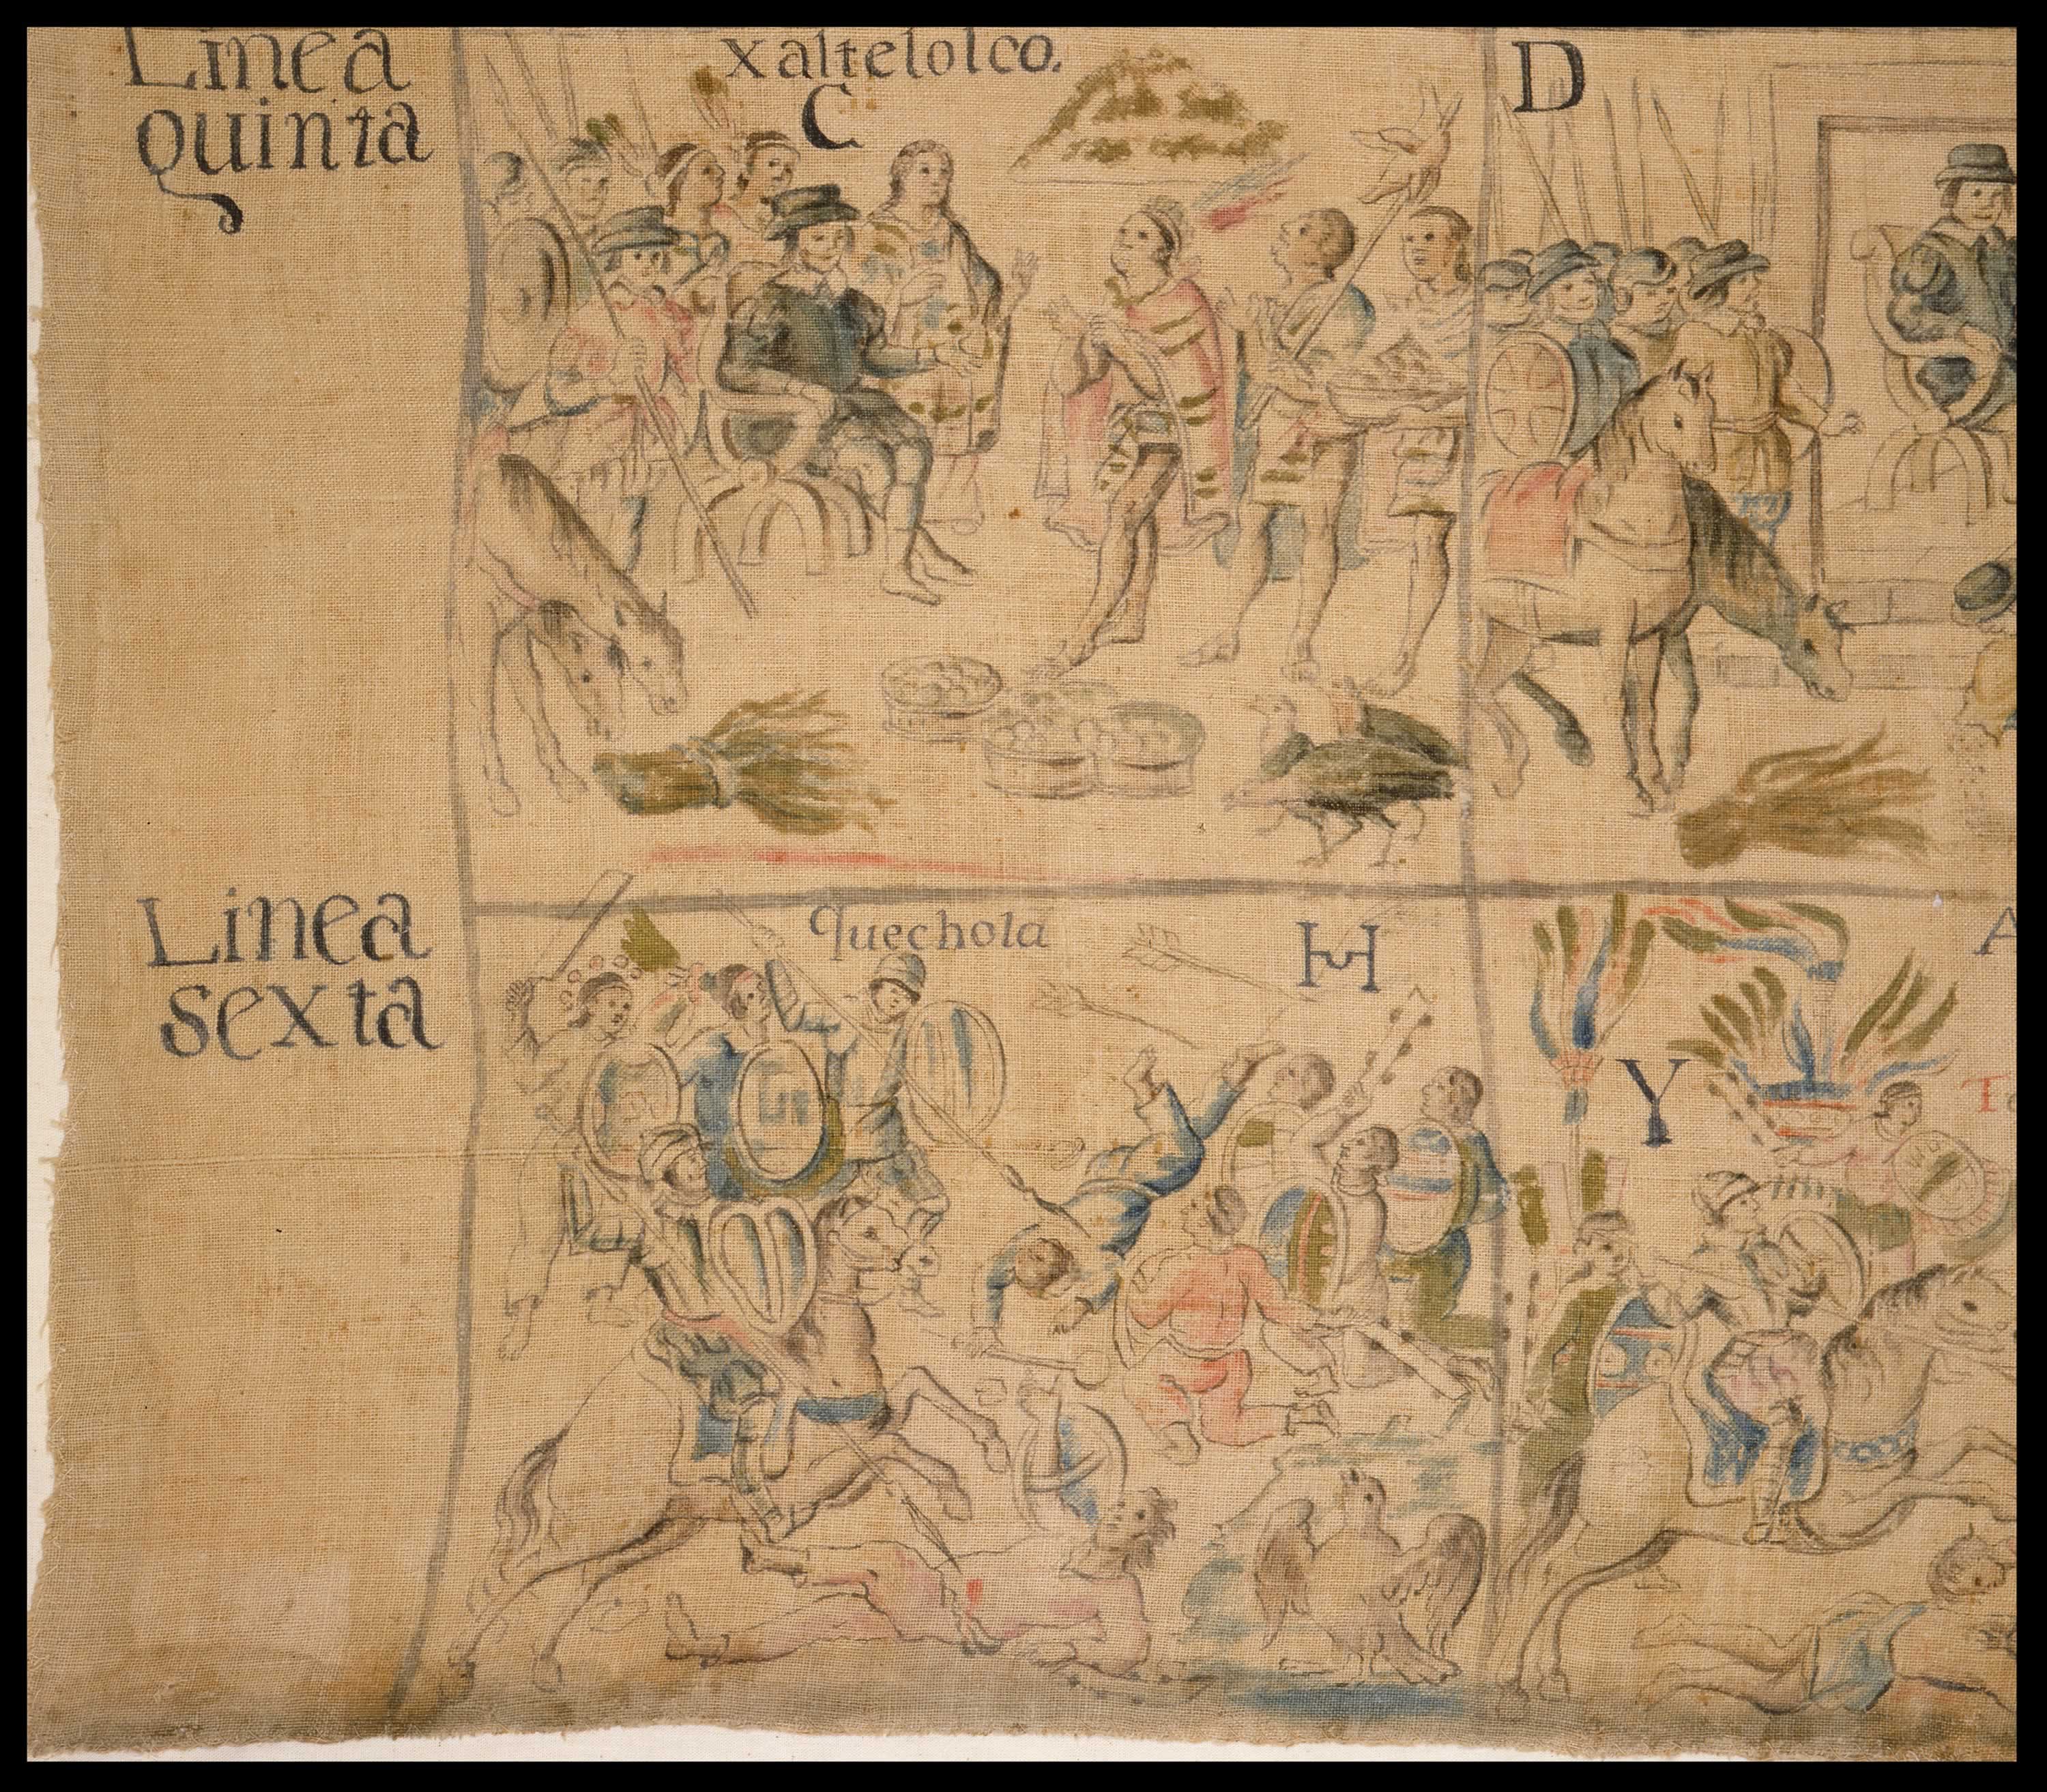 Linea
quinta
xaltelolco.
C
D
Linea
sexta
quechola
H
Y
A